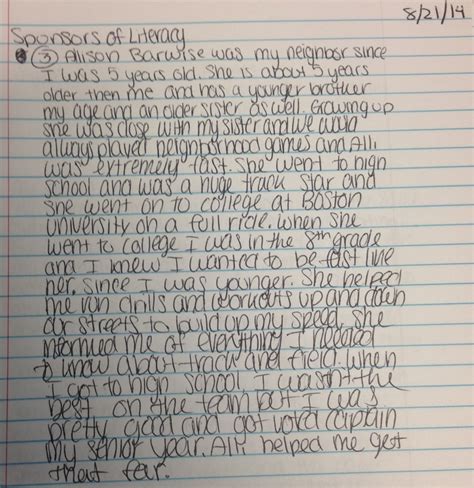 8/21/14
Sponsors of Literacy
③ Alison Barwise was my neighbor since
I was 5 years old. She is about 5 years
older then me and has a younger brother
my age and an older sister as well. Growing up
she was close with my sister and we would
always played neighborhood games and Alli
was extremely fast. She went to high
school and was a huge track star and
she went on to college at Boston
University on a full ride. When she
went to college I was in the 8th grade
and I knew I wanted to be fast like
her. Since I was younger. She helped
me run drills and workouts up and down
our streets to build up my speed. She
informed me of everything I needed
to know about track and field. When
I got to high school I wasnt the
best on the team but I was
pretty good and got votd captain
my senior year. Alli helped me get
that far.